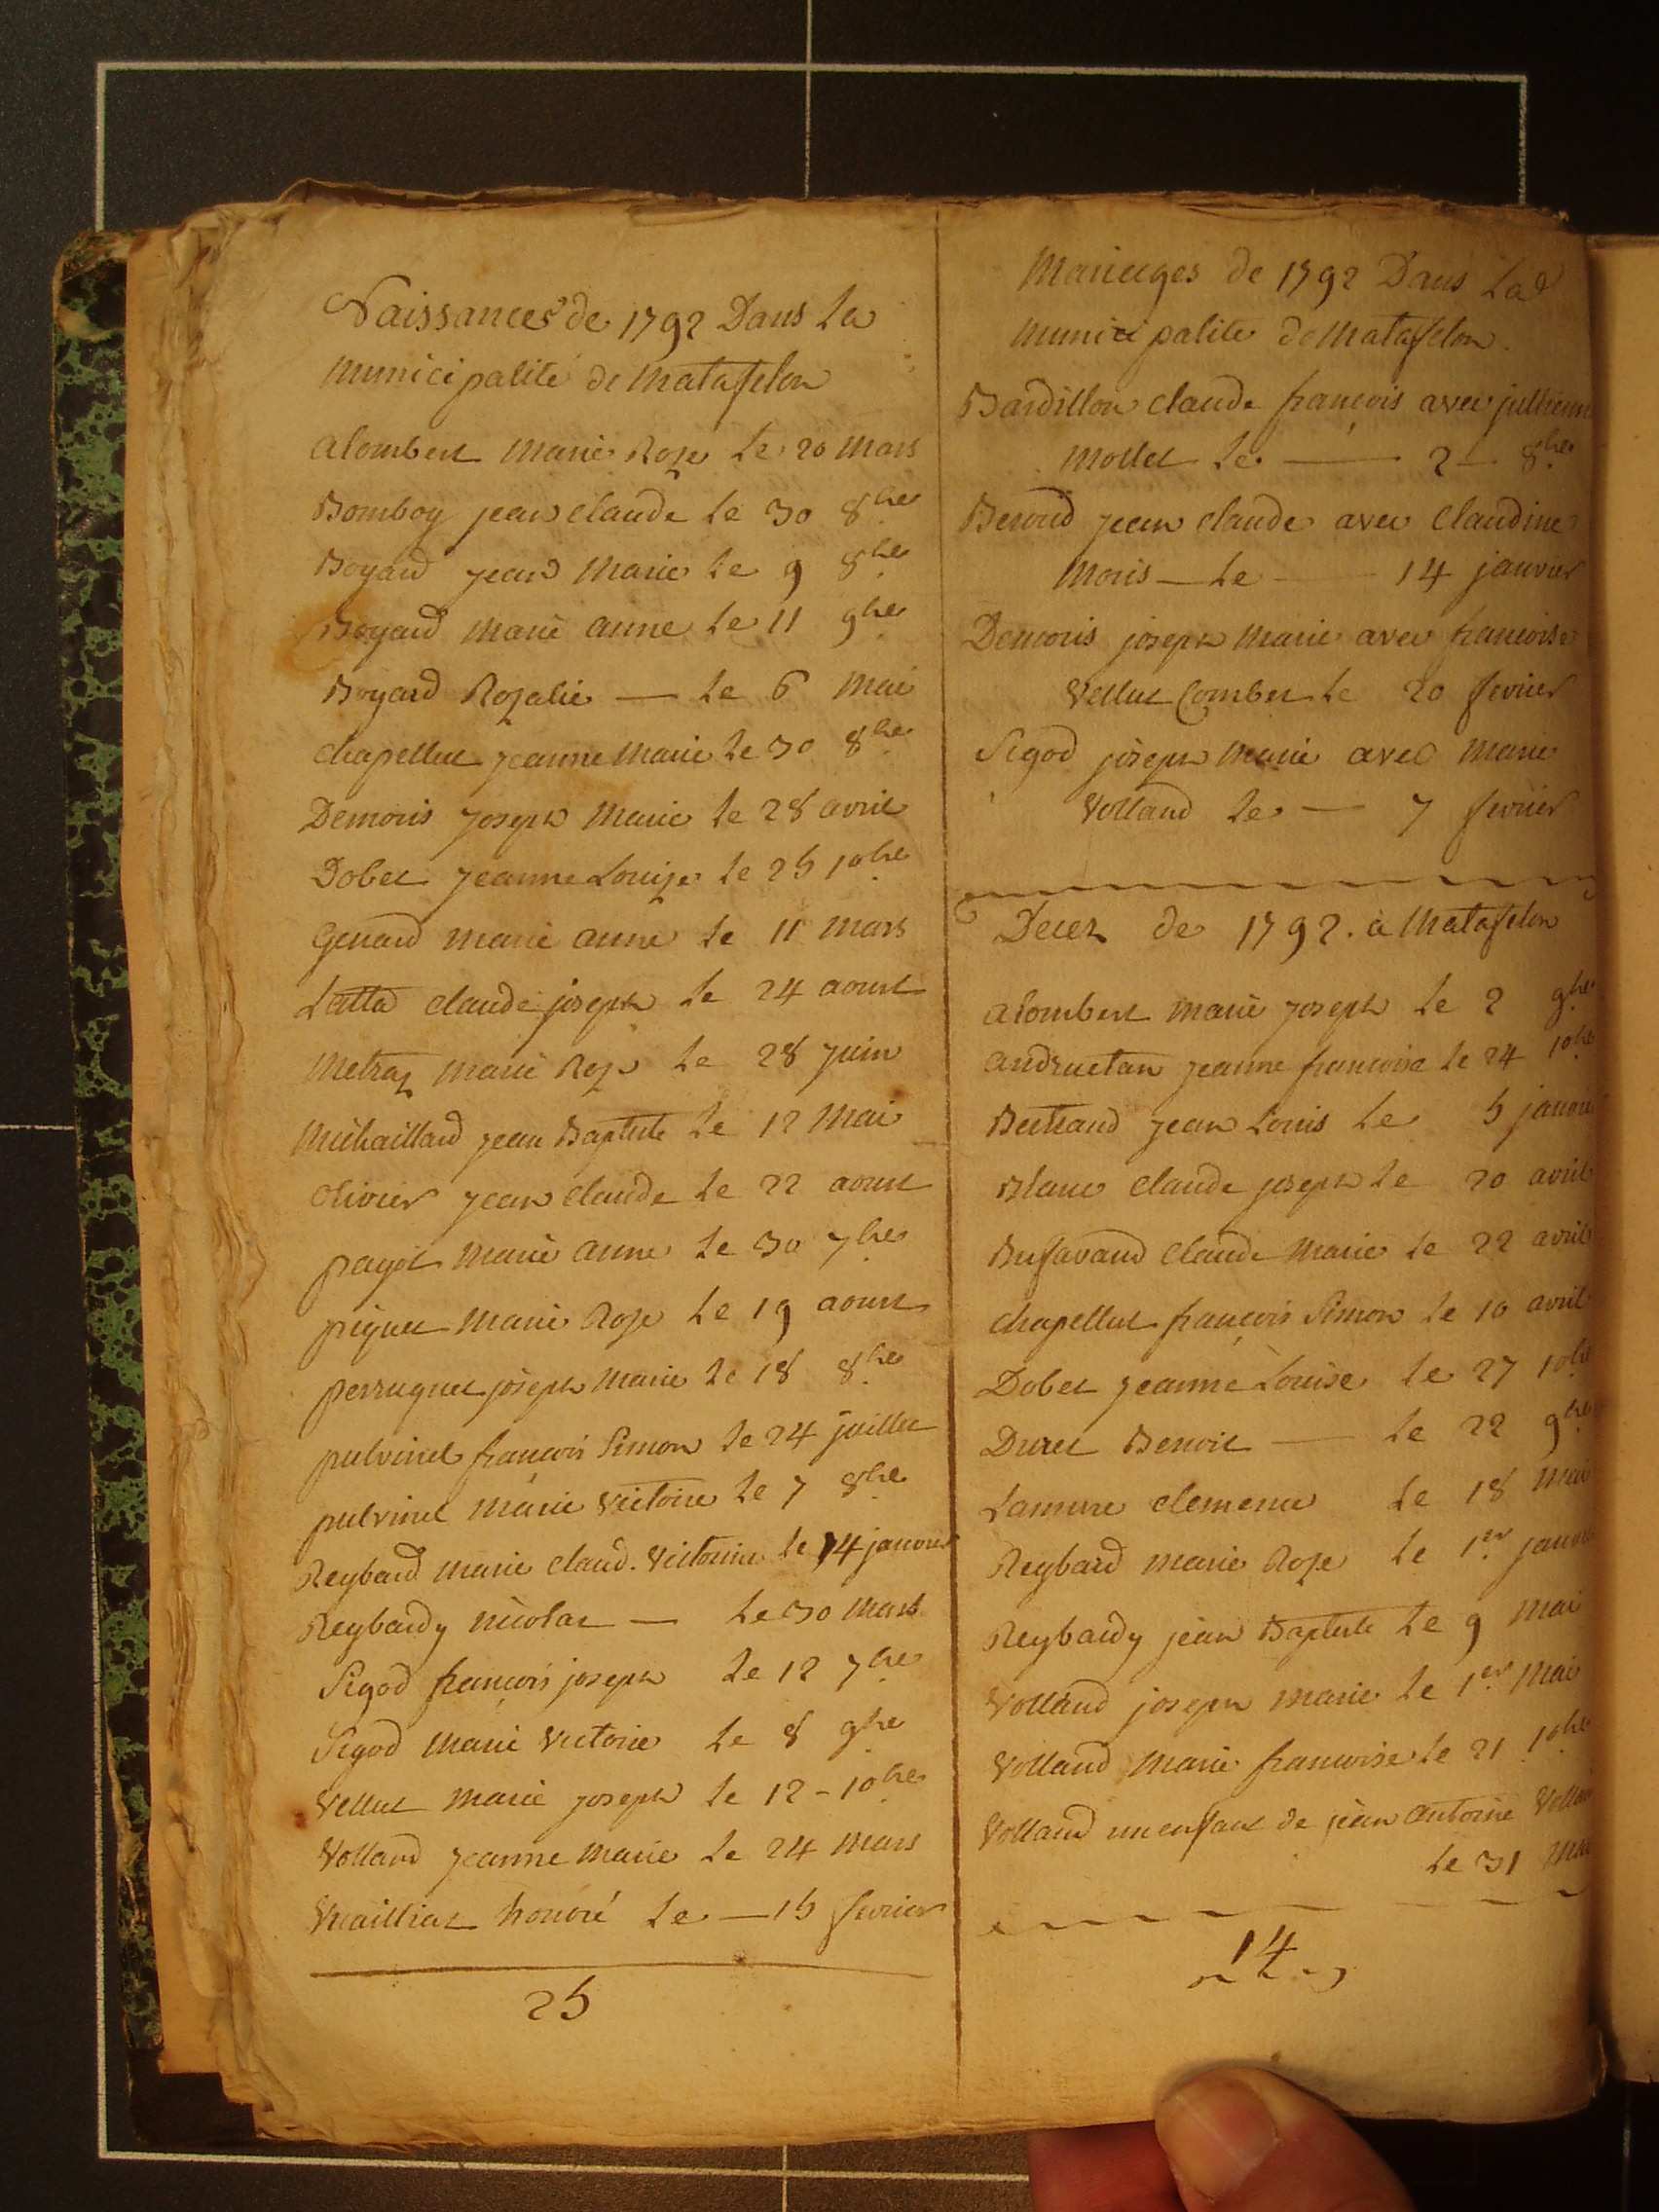 Naissances de 1792 Dans La
Municipalité de Matafelon
alombert Marie Roze le 20 Mars
Bomboy jean claude le 30 8bre
Boyard jean Marie le 9 8bre
Boyard Marie anne le 11 9bre
Boyard Rozalie — le 6 Mai
chapellut jeanne Marie le 30 8bre
Demoris joseph Marie le 28 avril
Dobet jeanne Louize le 25 10bre
Genard marie anne le 11 mars
Latta claude joseph le 24 aoust
Metraz Marie Roze le 28 juin
Michaillard jean Baptiste le 12 Mai
olivier jean claude le 22 aoust
payot Marie anne le 30 7bre
piquet Marie Roze le 19 aoust
perruquet joseph Marie le 18 8bre
pulvinet françois Simon le 24 juillet
pulvinet Marie Victoire le 7 8bre
Reybard marie claud. Victorine le 14 janvier
Reybardy nicolas — le 30 Mars
Sigod françois joseph le 12 7bre
Sigod Marie Victoire le 8 9bre
Vellut Marie joseph le 12 - 10bre
Volland jeanne Marie le 24 Mars
honoré le — 15 fevrier
25
Mariages de 1792 Dans La
Municipalité de Matafelon.
Bardillon claude françois avec jullienne
Mollet le — 2 — 8bre
Beroud jean claude avec Claudine
Moris — le — 14 janvier
Demoris joseph Marie avec francoise
Vellut Combet le 20 fevrier
Sigod joseph Marie avec Marie
Volland le — 7 fevrier
Decez de 1792. à Matafelon
alombert marie joseph le 2 9bre
andruetan jeanne francoise le 24 10bre
Bertrand jean Louis le 5 janvier
Blanc claude joseph le 20 avril
Bufavand Claude Marie le 22 avril
chapellut françois Simon le 10 avril
Dobet jeanne Louise le 27 10bre
Duret Benoit — le 22 9bre
Lamure clemence le 18 Mai
Reybard marie Roze le 1er janvier
Reybardy jean Baptiste le 9 Mai
Volland joseph marie le 1er Mai
Volland Marie francoise le 21 10bre
Volland un enfant de jean antoine Volland
le 31
14